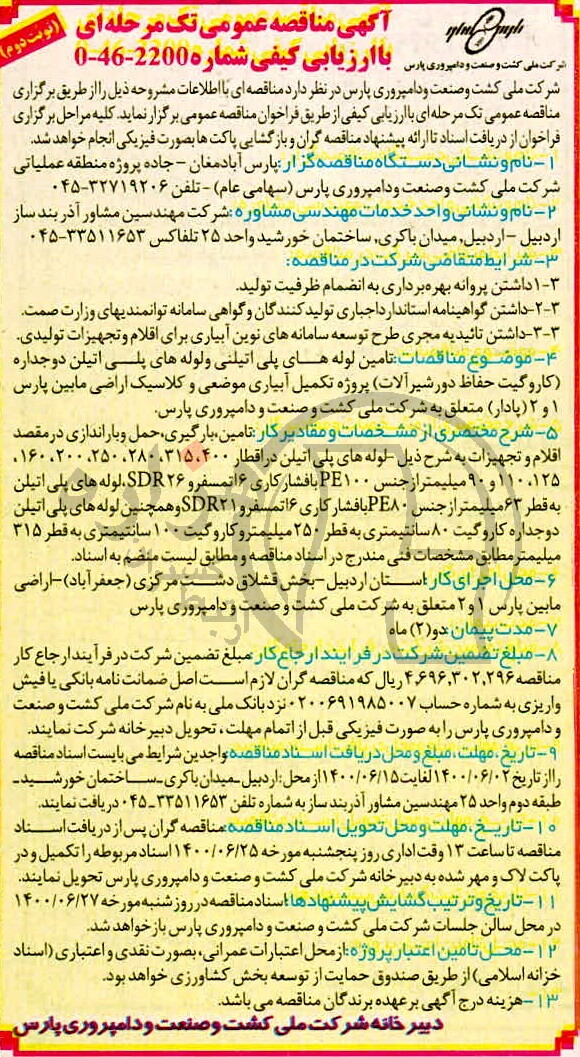 آگهی مناقصه عمومی تک مرحله‌ای
با ارزیابی کیفی شماره 2200-46-0
(نوبت دوم)
شرکت ملی کشت و صنعت و دامپروری پارس
شرکت ملی کشت وصنعت ودامپروری پارس در نظر دارد مناقصه ای با اطلاعات مشروحه ذیل را از طریق برگزاری
مناقصه عمومی تک مرحله ای با ارزیابی کیفی از طریق فراخوان مناقصه عمومی برگزار نماید. کلیه مراحل برگزاری
فراخوان از دریافت اسناد تا ارائه پیشنهاد مناقصه گران و بازگشایی پاکت ها بصورت فیزیکی انجام خواهد شد.
۱- نام و نشانی دستگاه مناقصه گزار: پارس آبادمغان – جاده پروژه منطقه عملیاتی
شرکت ملی کشت وصنعت ودامپروری پارس (سهامی عام) - تلفن ۳۲۷۱۹۲۰۶-۰۴۵
۲- نام و نشانی واحد خدمات مهندسی مشاوره: شرکت مهندسین مشاور آذر بند ساز
اردبیل – اردبیل, میدان باکری, ساختمان خورشید واحد ۲۵ تلفاکس ۳۳۵۱۱۶۵۳-۰۴۵
۳- شرایط متقاضی شرکت در مناقصه:
۳-۱ داشتن پروانه بهره برداری به انضمام ظرفیت تولید.
۳-۲- داشتن گواهینامه استاندارد اجباری تولید کنندگان و گواهی سامانه توانمندیهای وزارت صمت.
۳-۳- داشتن تائیدیه مجری طرح توسعه سامانه های نوین آبیاری برای اقلام و تجهیزات تولیدی.
۴- موضوع مناقصات: تامین لوله های پلی اتیلنی ولوله های پلی اتیلن دوجداره
(کاروگیت حفاظ دور شیرآلات) پروژه تکمیل آبیاری موضعی و کلاسیک اراضی مابین پارس
۱ و ۲ (پادار) متعلق به شرکت ملی کشت و صنعت و دامپروری پارس.
۵- شرح مختصری از مشخصات و مقادیر کار: تامین، بارگیری، حمل و باراندازی در مقصد
اقلام و تجهیزات به شرح ذیل - لوله های پلی اتیلن در اقطار ۴۰۰، ۳۱۵، ۲۸۰، ۲۵۰، ۲۰۰، ۱۶۰،
۱۲۵، ۱۱۰ و ۹۰ میلیمتر از جنس PE۱۰۰ بافشار کاری ۶ اتمسفر و SDR۲۶، لوله های پلی اتیلن
به قطر ۶۳ میلیمتر از جنس PE۸۰ بافشار کاری ۶ اتمسفر و SDR۲۱ و همچنین لوله های پلی اتیلن
دوجداره کاروگیت ۸۰ سانتیمتری به قطر ۲۵۰ میلیمتر و کاروگیت ۱۰۰ سانتیمتری به قطر ۳۱۵
میلیمتر مطابق مشخصات فنی مندرج در اسناد مناقصه و مطابق لیست منضم به اسناد.
۶- محل اجرای کار: استان اردبیل - بخش قشلاق دشت مرکزی (جعفرآباد) – اراضی
مابین پارس ۱ و ۲ متعلق به شرکت ملی کشت و صنعت و دامپروری پارس
۷- مدت پیمان: دو (۲) ماه
۸- مبلغ تضمین شرکت در فرایند ارجاع کار: مبلغ تضمین شرکت در فرآیند ارجاع کار
مناقصه ۴,۶۹۶,۳۰۲,۲۹۶ ریال که مناقصه گران لازم است اصل ضمانت نامه بانکی یا فیش
واریزی به شماره حساب ۰۲۰۰۶۹۱۹۸۵۰۰۷ نزد بانک ملی به نام شرکت ملی کشت و صنعت
و دامپروری پارس را به صورت فیزیکی قبل از اتمام مهلت، تحویل دبیرخانه شرکت نمایند.
۹- تاریخ، مهلت، مبلغ و محل دریافت اسناد مناقصه: واجدین شرایط می بایست اسناد مناقصه
را از تاریخ ۱۴۰۰/۰۶/۰۲ لغایت ۱۴۰۰/۰۶/۱۵ از محل: اردبیل - میدان باکری - ساختمان خورشید -
طبقه دوم واحد ۲۵ مهندسین مشاور آذربند ساز به شماره تلفن ۳۳۵۱۱۶۵۳-۰۴۵ دریافت نمایند.
۱۰- تاریخ، مهلت و محل تحویل اسناد مناقصه: مناقصه گران پس از دریافت اسناد
مناقصه تا ساعت ۱۳ وقت اداری روز پنجشنبه مورخه ۱۴۰۰/۰۶/۲۵ اسناد مربوطه را تکمیل و در
پاکت لاک و مهر شده به دبیرخانه شرکت ملی کشت و صنعت و دامپروری پارس تحویل نمایند.
۱۱- تاریخ و ترتیب گشایش پیشنهادها: اسناد مناقصه در روز شنبه مورخه ۱۴۰۰/۰۶/۲۷
در محل سالن جلسات شرکت ملی کشت و صنعت و دامپروری پارس باز خواهد شد.
۱۲- محل تامین اعتبار پروژه: از محل اعتبارات عمرانی، بصورت نقدی و اعتباری (اسناد
خزانه اسلامی) از طریق صندوق حمایت از توسعه بخش کشاورزی خواهد بود.
۱۳- هزینه درج آگهی بر عهده برندگان مناقصه می باشد.
دبیرخانه شرکت ملی کشت و صنعت و دامپروری پارس